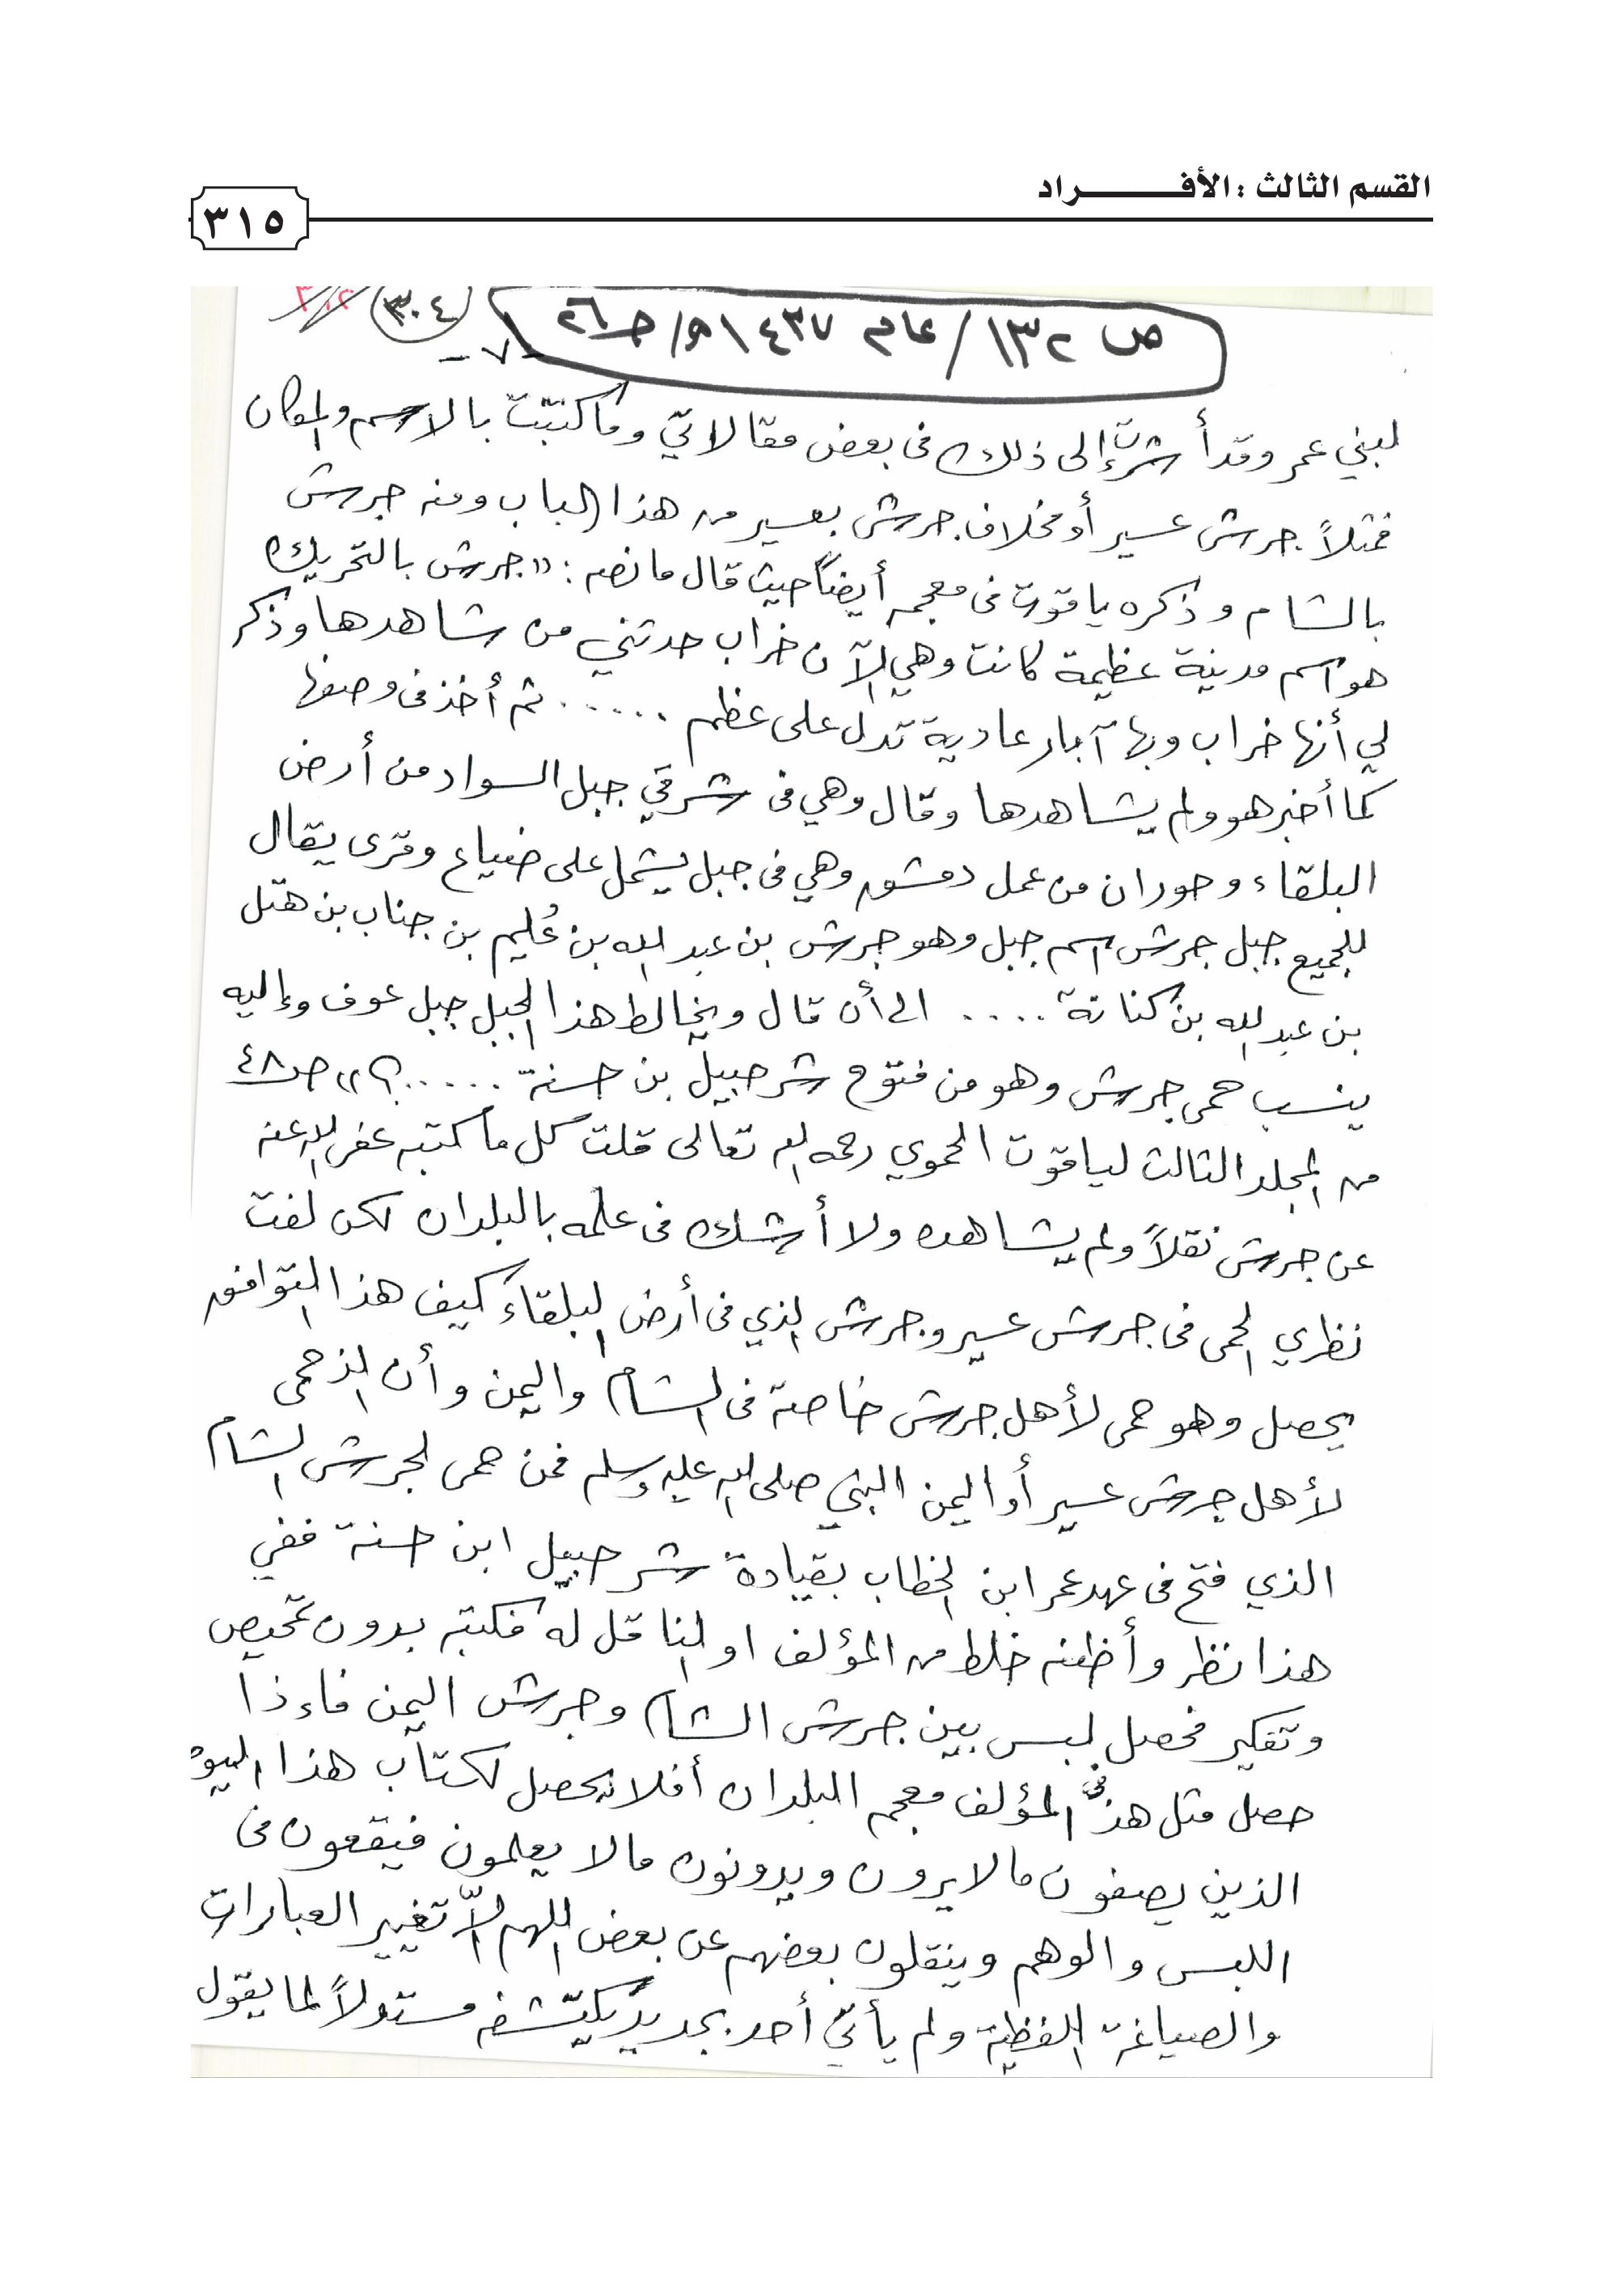 القسم الثالث : الأفـــــــراد
٣١٥
ص ١٣٢/ عام ١٤٣٧هـ/ حـ٢٦
٣٠٤
-٧-
لبني عمر وقد أشرت إلى ذلك فى بعض مقالاتي وما كتبت بالاسم والمكان
فمثلاً جرش عسير أو مخلاف جرش بعسير من هذا الباب ومنه جرش
بالشام وذكره ياقوت فى معجمه أيضاً حيث قال ما نصه : «جرش بالتحريك
هو اسم مدينة عظيمة كانت وهي الآن خراب حدثني من شاهدها وذكر
لي أنها خراب وبها آبار عادية تدل على عظم ...... ثم أخذ فى وصفها
كما أخبر هو ولم يشاهدها وقال وهي فى شرقي جبل السواد من أرض
البلقاء وحوران من عمل دمشق وهي فى جبل يشمل على ضياع وقرى يقال
للجميع جبل جرش اسم جبل وهو جرش بن عبد الله بن عُليم بن جناب بن هتل
بن عبد الله بن كنانة .... الى أن قال ويخالط هذا الجبل جبل عوف وإليه
ينسب حمى جرش وهو من فتوح شرحبيل بن حسنة ......؟» ص٤٨
من المجلد الثالث لياقوت الحموي رحمه الله تعالى قلت كل ما كتبه عفى الله عنه
عن جرش نقلاً ولم يشاهده ولا أشك فى علمه بالبلدان لكن لفت
نظري الحمى فى جرش عسير وجرش الذي فى أرض البلقاء كيف هذا التوافق
يحصل وهو حمى لأهل جرش خاصة فى الشام واليمن وأن الذ حمى
لأهل جرش عسير أو اليمن النبي صلى الله عليه وسلم فمن حمى لجرش الشام
الذي فتح فى عهد عمر ابن الخطاب بقيادة شرحبيل ابن حسنة ففي
هذا نظر وأظنه خلط من المؤلف او الناقل له فكتبه بدون تمحيص
وتفكير فحصل لبس بين جرش الشام وجرش اليمن فاءذا
حصل مثل هذا فى المؤلف معجم البلدان أفلا يحصل لكتاب هذا اليوم
الذين يصفون ما لا يرون ويدونون ما لا يعلمون فيقعون فى
اللبس والوهم وينقلون بعضهم عن بعض اللهم إلاّ تغيير العبارات
والصياغة اللفظية ولم يأتي أحد بجديد يكتشفه مستدلاً لما يقول